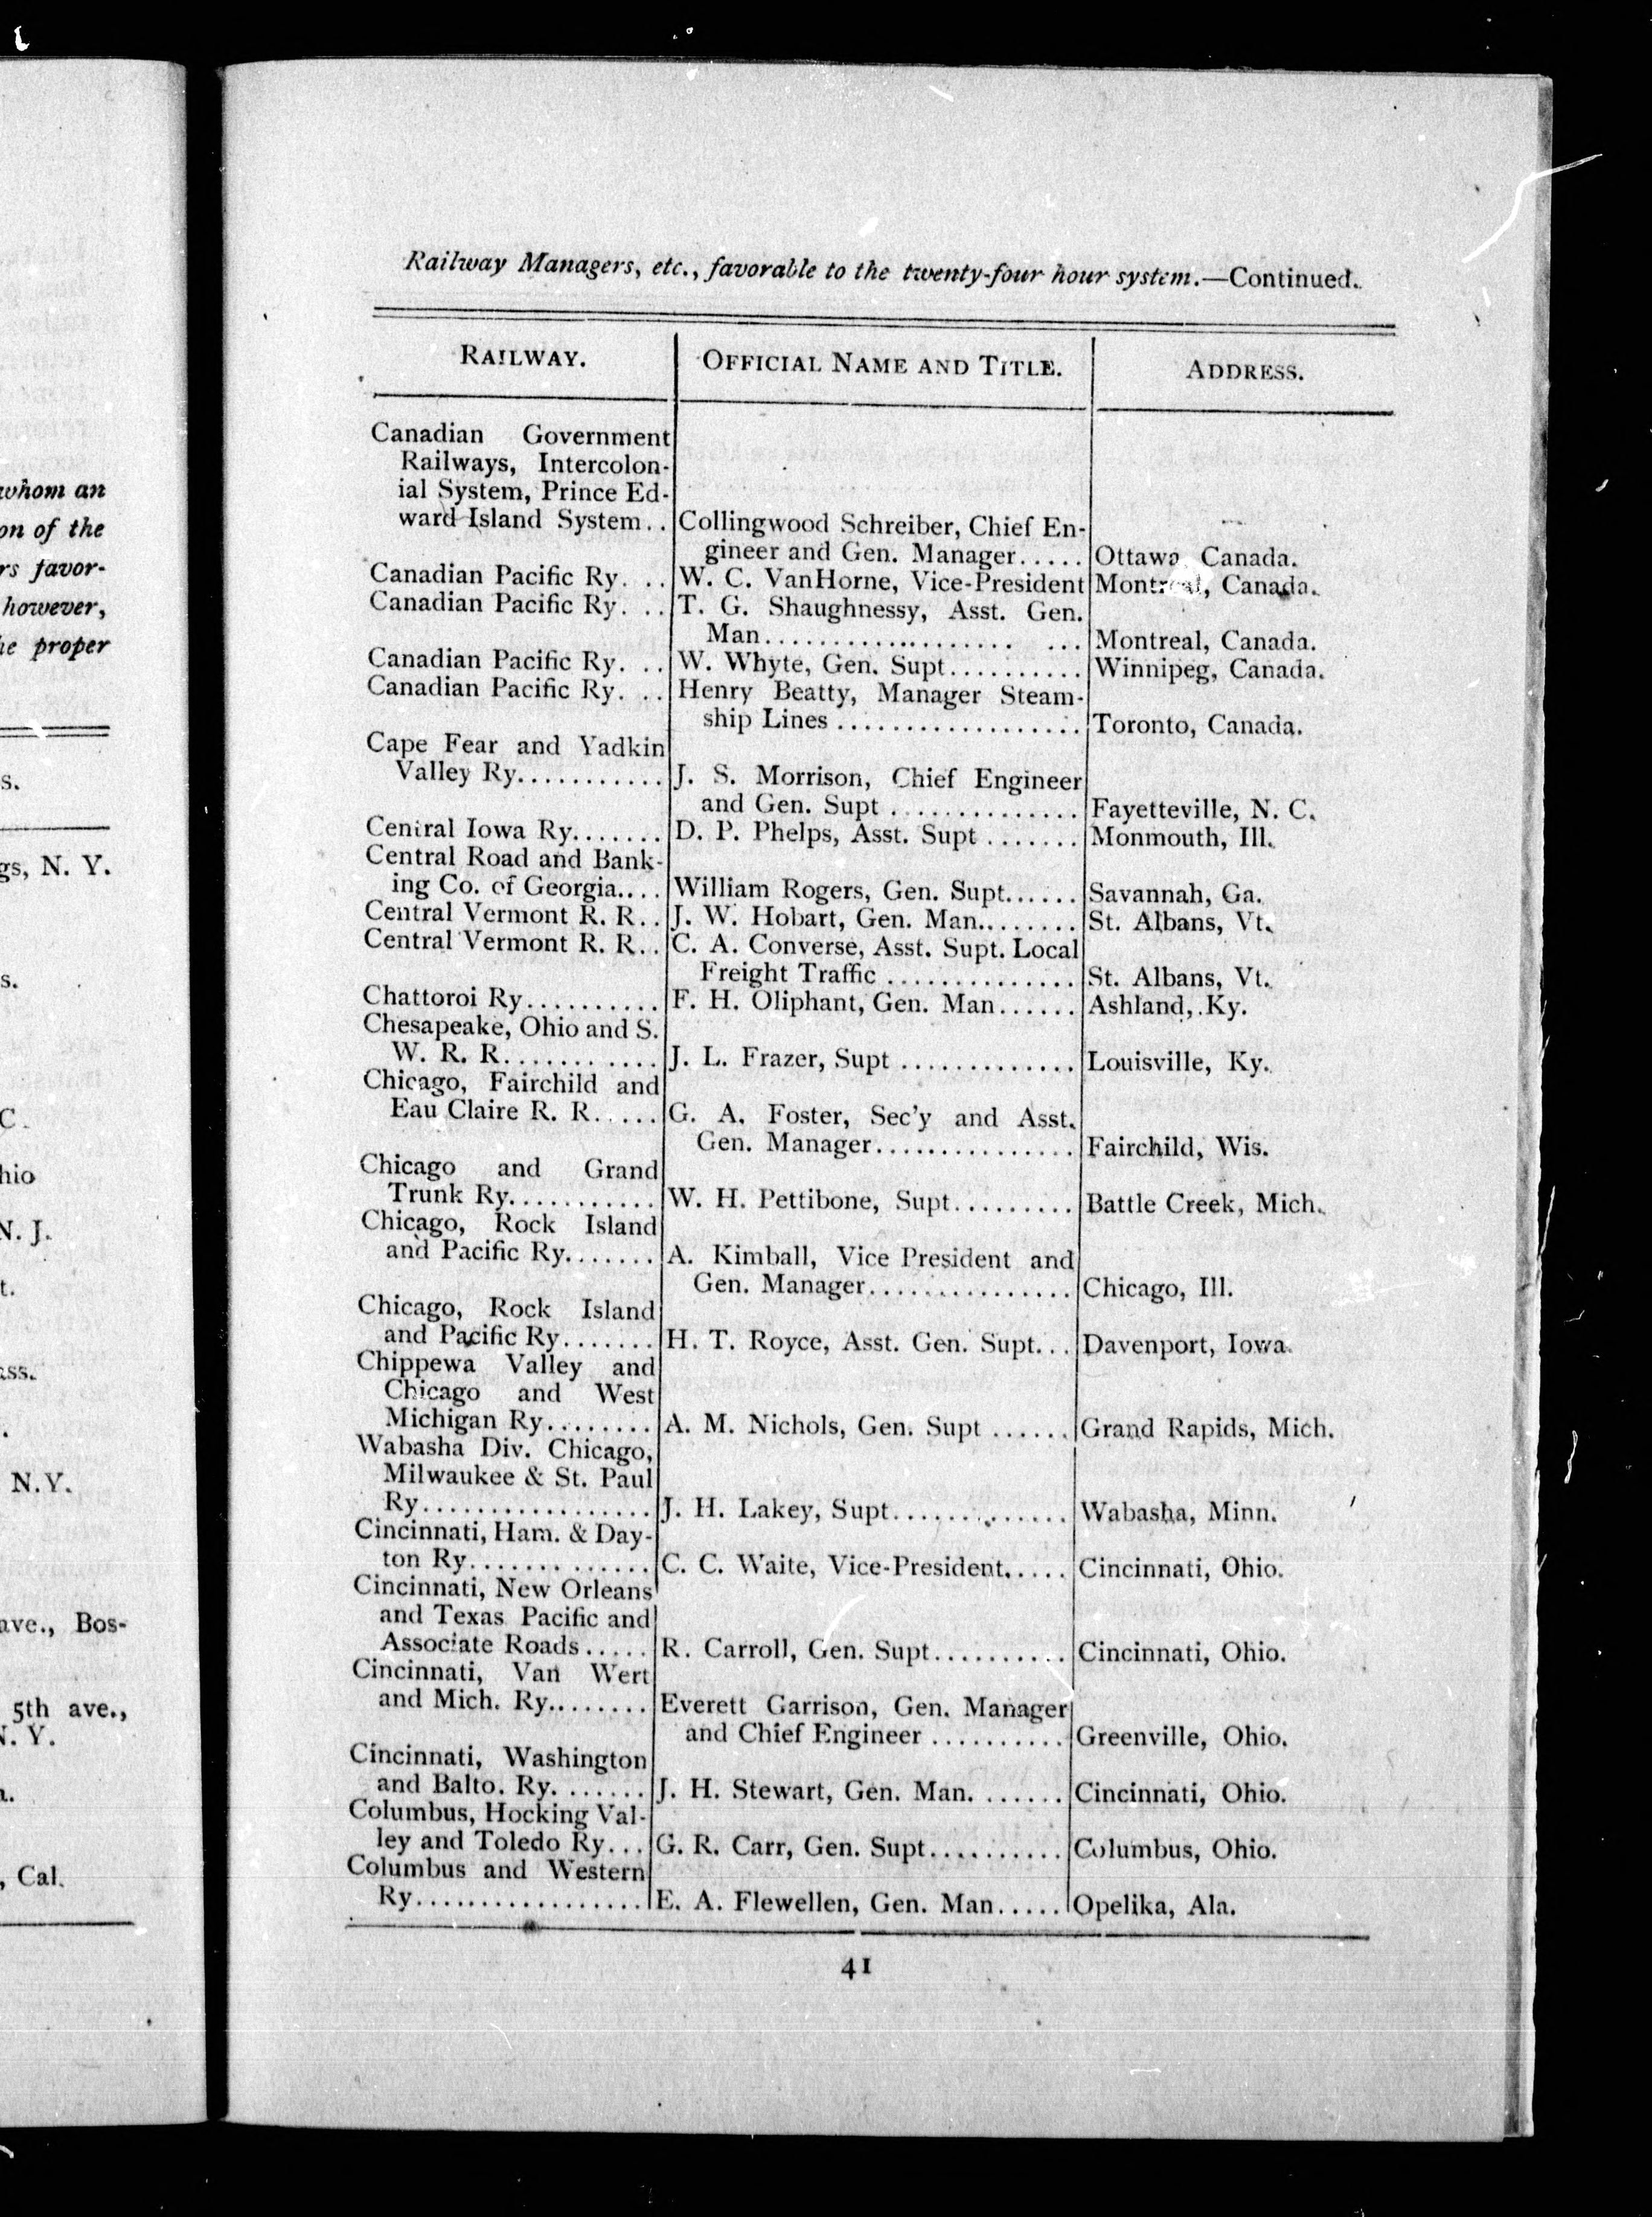 whom an
on of the
rs favor-
however,
he proper
s.
gs, N. Y.
s.
C.
hio
N. J.
t.
ass.
N.Y.
ave., Bos-
5th ave.,
N. Y.
, Cal.
Railway Managers, etc., favorable to the twenty-four hour system.—Continued.
RAILWAY. OFFICIAL NAME AND TITLE. ADDRESS.
Canadian Government
Railways, Intercolon-
ial System, Prince Ed-
ward Island System.. Collingwood Schreiber, Chief En-
gineer and Gen. Manager..... Ottawa, Canada.
Canadian Pacific Ry. .. W. C. VanHorne, Vice-President Montreal, Canada.
Canadian Pacific Ry. .. T. G. Shaughnessy, Asst. Gen.
Man....................... ... Montreal, Canada.
Canadian Pacific Ry. .. W. Whyte, Gen. Supt.......... Winnipeg, Canada.
Canadian Pacific Ry. .. Henry Beatty, Manager Steam-
ship Lines .................. Toronto, Canada.
Cape Fear and Yadkin
Valley Ry........... J. S. Morrison, Chief Engineer
and Gen. Supt .............. Fayetteville, N. C.
Central Iowa Ry....... D. P. Phelps, Asst. Supt ....... Monmouth, Ill.
Central Road and Bank-
ing Co. of Georgia.... William Rogers, Gen. Supt...... Savannah, Ga.
Central Vermont R. R.. J. W. Hobart, Gen. Man........ St. Albans, Vt.
Central Vermont R. R.. C. A. Converse, Asst. Supt. Local
Freight Traffic .............. St. Albans, Vt.
Chattoroi Ry.......... F. H. Oliphant, Gen. Man...... Ashland, Ky.
Chesapeake, Ohio and S.
W. R. R............ J. L. Frazer, Supt ............. Louisville, Ky.
Chicago, Fairchild and
Eau Claire R. R..... G. A. Foster, Sec'y and Asst.
Gen. Manager............... Fairchild, Wis.
Chicago and Grand
Trunk Ry........... W. H. Pettibone, Supt......... Battle Creek, Mich.
Chicago, Rock Island
and Pacific Ry....... A. Kimball, Vice President and
Gen. Manager............... Chicago, Ill.
Chicago, Rock Island
and Pacific Ry....... H. T. Royce, Asst. Gen. Supt... Davenport, Iowa.
Chippewa Valley and
Chicago and West
Michigan Ry........ A. M. Nichols, Gen. Supt ...... Grand Rapids, Mich.
Wabasha Div. Chicago,
Milwaukee & St. Paul
Ry................. J. H. Lakey, Supt............. Wabasha, Minn.
Cincinnati, Ham. & Day-
ton Ry............. C. C. Waite, Vice-President..... Cincinnati, Ohio.
Cincinnati, New Orleans
and Texas Pacific and
Associate Roads..... R. Carroll, Gen. Supt.......... Cincinnati, Ohio.
Cincinnati, Van Wert
and Mich. Ry........ Everett Garrison, Gen. Manager
and Chief Engineer .......... Greenville, Ohio.
Cincinnati, Washington
and Balto. Ry. ...... J. H. Stewart, Gen. Man. ...... Cincinnati, Ohio.
Columbus, Hocking Val-
ley and Toledo Ry... G. R. Carr, Gen. Supt.......... Columbus, Ohio.
Columbus and Western
Ry................. E. A. Flewellen, Gen. Man..... Opelika, Ala.
41